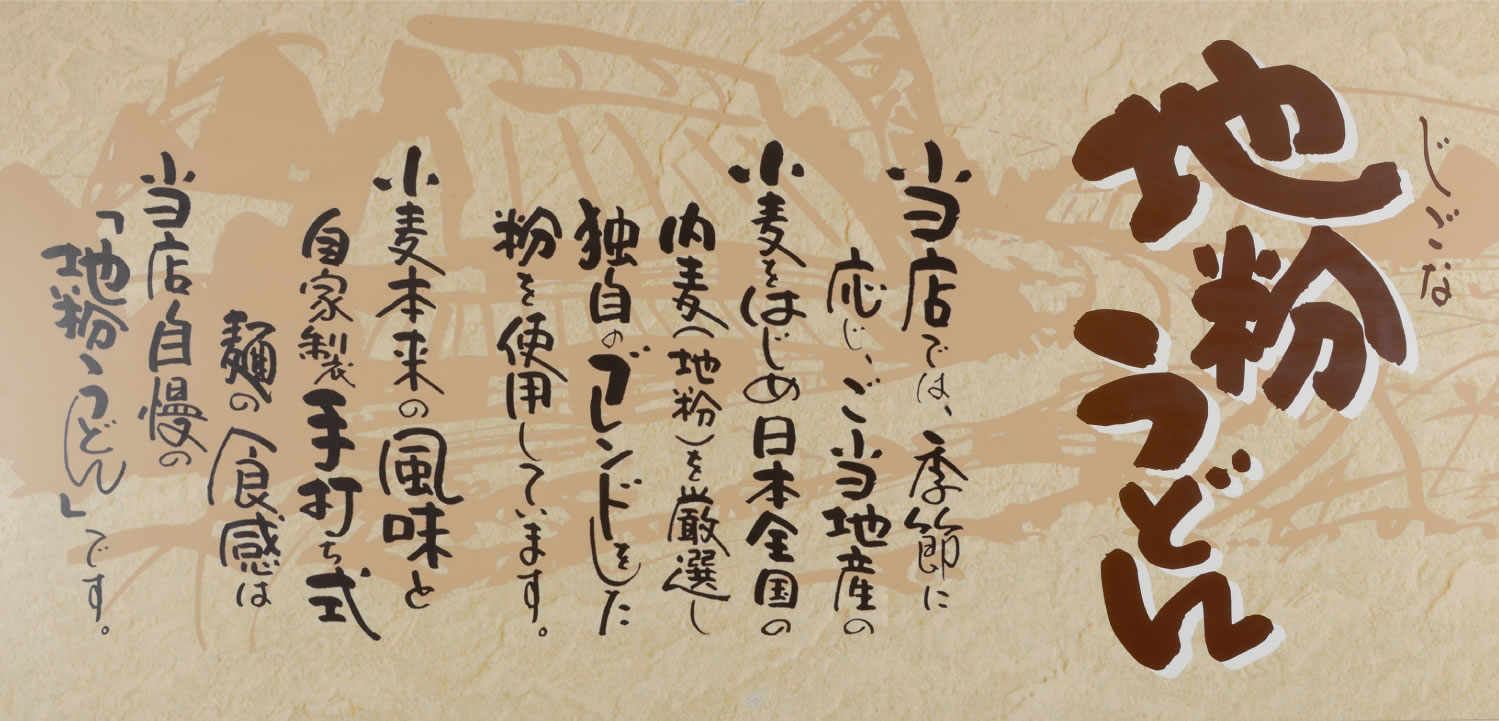 じごな
地粉うどん
当店では、季節に
応じ、ご当地産の
小麦をはじめ日本全国の
内麦(地粉)を厳選し
独自のブレンドをした
粉を使用しています。
小麦本来の風味と
自家製手打ち式
麺の食感は
当店自慢の
「地粉うどん」です。